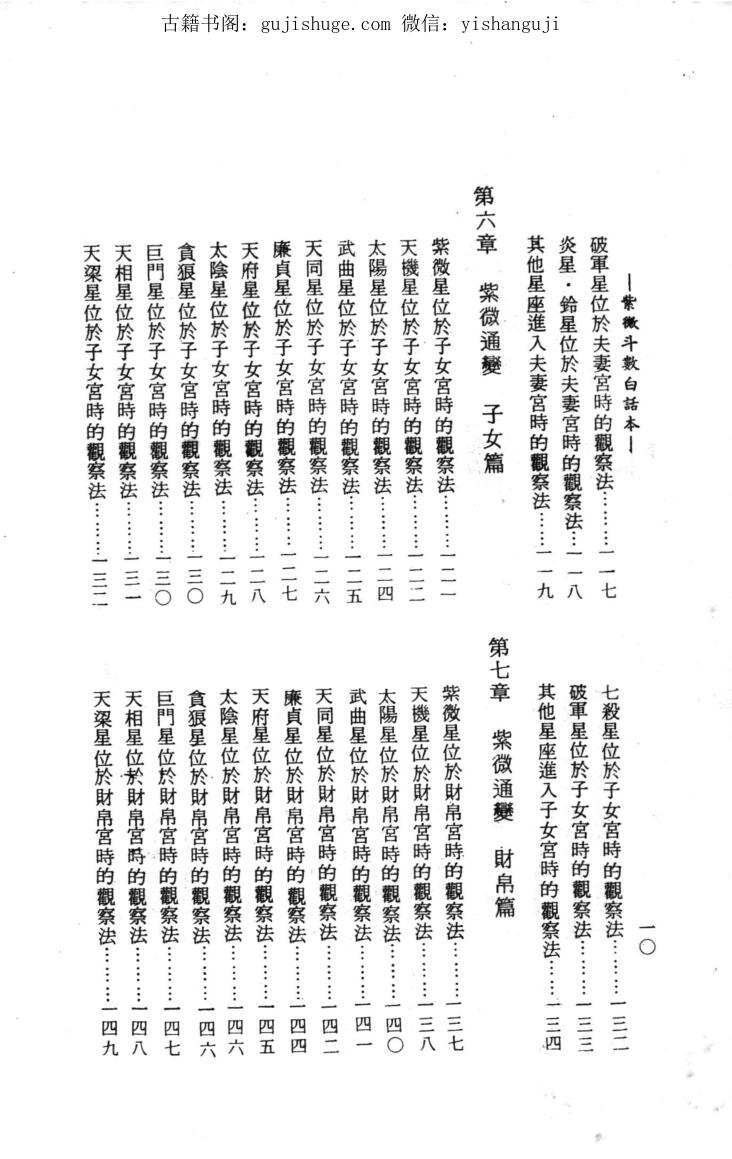 古籍书阁：gujishuge.com 微信：yishanguji
—紫微斗數白話本—
破軍星位於夫妻宮時的觀察法………一一七
炎星・鈴星位於夫妻宮時的觀察法……一一八
其他星座進入夫妻宮時的觀察法……一一九
第六章　紫微通變　子女篇
紫微星位於子女宮時的觀察法………一二一
天機星位於子女宮時的觀察法………一二二
太陽星位於子女宮時的觀察法………一二四
武曲星位於子女宮時的觀察法………一二五
天同星位於子女宮時的觀察法………一二六
廉貞星位於子女宮時的觀察法………一二七
天府星位於子女宮時的觀察法………一二八
太陰星位於子女宮時的觀察法………一二九
貪狼星位於子女宮時的觀察法………一三〇
巨門星位於子女宮時的觀察法………一三〇
天相星位於子女宮時的觀察法………一三一
天梁星位於子女宮時的觀察法………一三二
一〇
七殺星位於子女宮時的觀察法………一三二
破軍星位於子女宮時的觀察法………一三三
其他星座進入子女宮時的觀察法……一三四
第七章　紫微通變　財帛篇
紫微星位於財帛宮時的觀察法………一三七
天機星位於財帛宮時的觀察法………一三八
太陽星位於財帛宮時的觀察法………一四〇
武曲星位於財帛宮時的觀察法………一四一
天同星位於財帛宮時的觀察法………一四二
廉貞星位於財帛宮時的觀察法………一四四
天府星位於財帛宮時的觀察法………一四五
太陰星位於財帛宮時的觀察法………一四六
貪狼星位於財帛宮時的觀察法………一四六
巨門星位於財帛宮時的觀察法………一四七
天相星位於財帛宮時的觀察法………一四八
天梁星位於財帛宮時的觀察法………一四九